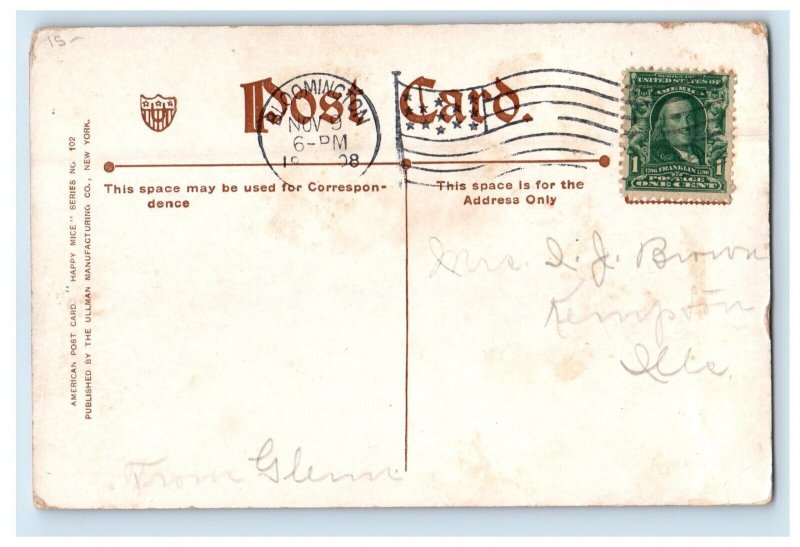 15-
Post Card.
BLOOMINGTON
NOV 9
6-PM
19 08
SERIES 1902
UNITED STATES OF
AMERICA
1 1706 FRANKLIN 1790 1
POSTAGE
ONE CENT
This space may be used for Correspon-
dence
This space is for the
Address Only
Mrs. I. J. Brown
Kempton
Ills.
From Glenn
AMERICAN POST CARD. "HAPPY MICE" SERIES NO. 102
PUBLISHED BY THE ULLMAN MANUFACTURING CO., NEW YORK.